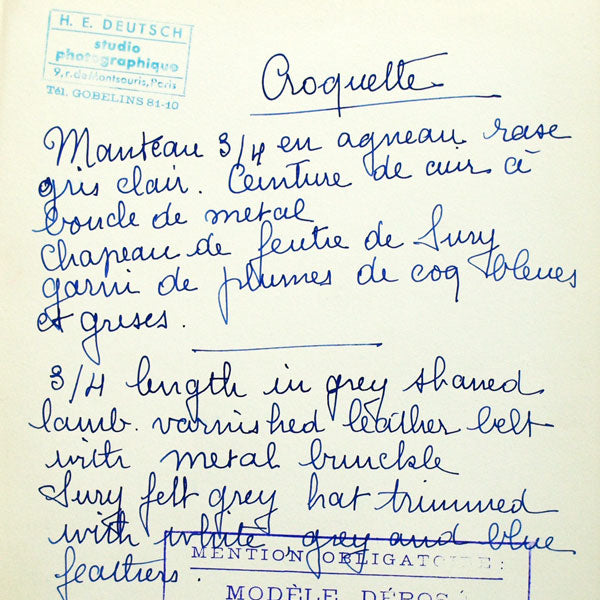 H. E. DEUTSCH
studio
photographique
9, r. de Montsouris, Paris
Tél. GOBELINS 81-10
Croquette
Manteau 3/4 en agneau rase
gris clair. Ceinture de cuir à
boucle de metal
Chapeau de feutre de Sury
garni de plumes de coq bleues
et grises.
3/4 length in grey shaned
lamb. varnished leather belt
with metal bunckle
Sury felt grey hat trimmed
with white, grey and blue
feathers.
MENTION OBLIGATOIRE :
MODÈLE DÉPOSÉ